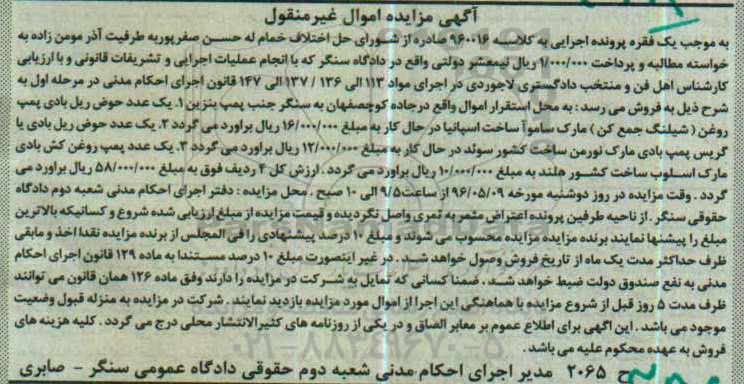 آگهی مزایده اموال غیرمنقول
به موجب یک فقره پرونده اجرایی به کلاسه ۹۶۰۰۱۶ صادره از شورای حل اختلاف خمام له حسن صفرپور به طرفیت آذر مومن زاده به
خواسته مطالبه و پرداخت ۱/۰۰۰/۰۰۰ ریال نیمعشر دولتی واقع در دادگاه سنگر که با انجام عملیات اجرایی و تشریفات قانونی و با ارزیابی
کارشناس اهل فن و منتخب دادگستری لاجوردی در اجرای مواد ۱۱۳ الی ۱۳۶ / ۱۳۷ الی ۱۴۷ قانون اجرای احکام مدنی در مرحله اول به
شرح ذیل به فروش می رسد : به محل استقرار اموال واقع در جاده کوچصفهان به سنگر جنب پمپ بنزین ۱. یک عدد حوض ریل بادی پمپ
روغن ( شیلنگ جمع کن ) مارک سامواً ساخت اسپانیا در حال کار به مبلغ ۱۶/۰۰۰/۰۰۰ ریال براورد می گردد ۲. یک عدد حوض ریل بادی یا
گریس پمپ بادی مارک نورمن ساخت کشور سوئد در حال کار به مبلغ ۱۲/۰۰۰/۰۰۰ ریال براورد می گردد ۳. یک عدد پمپ روغن کش بادی
مارک اسلوب ساخت کشور هلند به مبلغ ۱۰/۰۰۰/۰۰۰ ریال براورد می گردد . ارزش کل ۴ ردیف فوق به مبلغ ۵۸/۰۰۰/۰۰۰ ریال براورد می
گردد . وقت مزایده در روز دوشنبه مورخه ۹۶/۰۵/۰۹ از ساعت ۹/۵ الی ۱۰ صبح . محل مزایده : دفتر اجرای احکام مدنی شعبه دوم دادگاه
حقوقی سنگر . از ناحیه طرفین پرونده اعتراض مثمر به ثمری واصل نگردیده و قیمت مزایده از مبلغ ارزیابی شده شروع و کسانیکه بالاترین
مبلغ را پیشنها نمایند برنده مزایده مزایده محسوب می شوند و مبلغ ۱۰ درصد پیشنهادی را فی المجلس از برنده مزایده نقدا اخذ و مابقی
ظرف حداکثر مدت یک ماه از تاریخ فروش وصول خواهد شد . در غیر اینصورت مبلغ ۱۰ درصد مستندا به ماده ۱۲۹ قانون اجرای احکام
مدنی به نفع صندوق دولت ضبط خواهد شد . ضمنا کسانی که تمایل به شرکت در مزایده را دارند وفق ماده ۱۲۶ همان قانون می توانند
ظرف مدت ۵ روز قبل از شروع مزایده با هماهنگی این اجرا از اموال مورد مزایده بازدید نمایند . شرکت در مزایده به منزله قبول وضعیت
موجود می باشد . این اگهی برای اطلاع عموم بر معابر الصاق و در یکی از روزنامه های کثیرالانتشار محلی درج می گردد . کلیه هزینه های
فروش به عهده محکوم علیه می باشد .
ح ۲۰۶۵ مدیر اجرای احکام مدنی شعبه دوم حقوقی دادگاه عمومی سنگر - صابری
۰۲۱-۸۸۳۴۹۶۷۰-۵